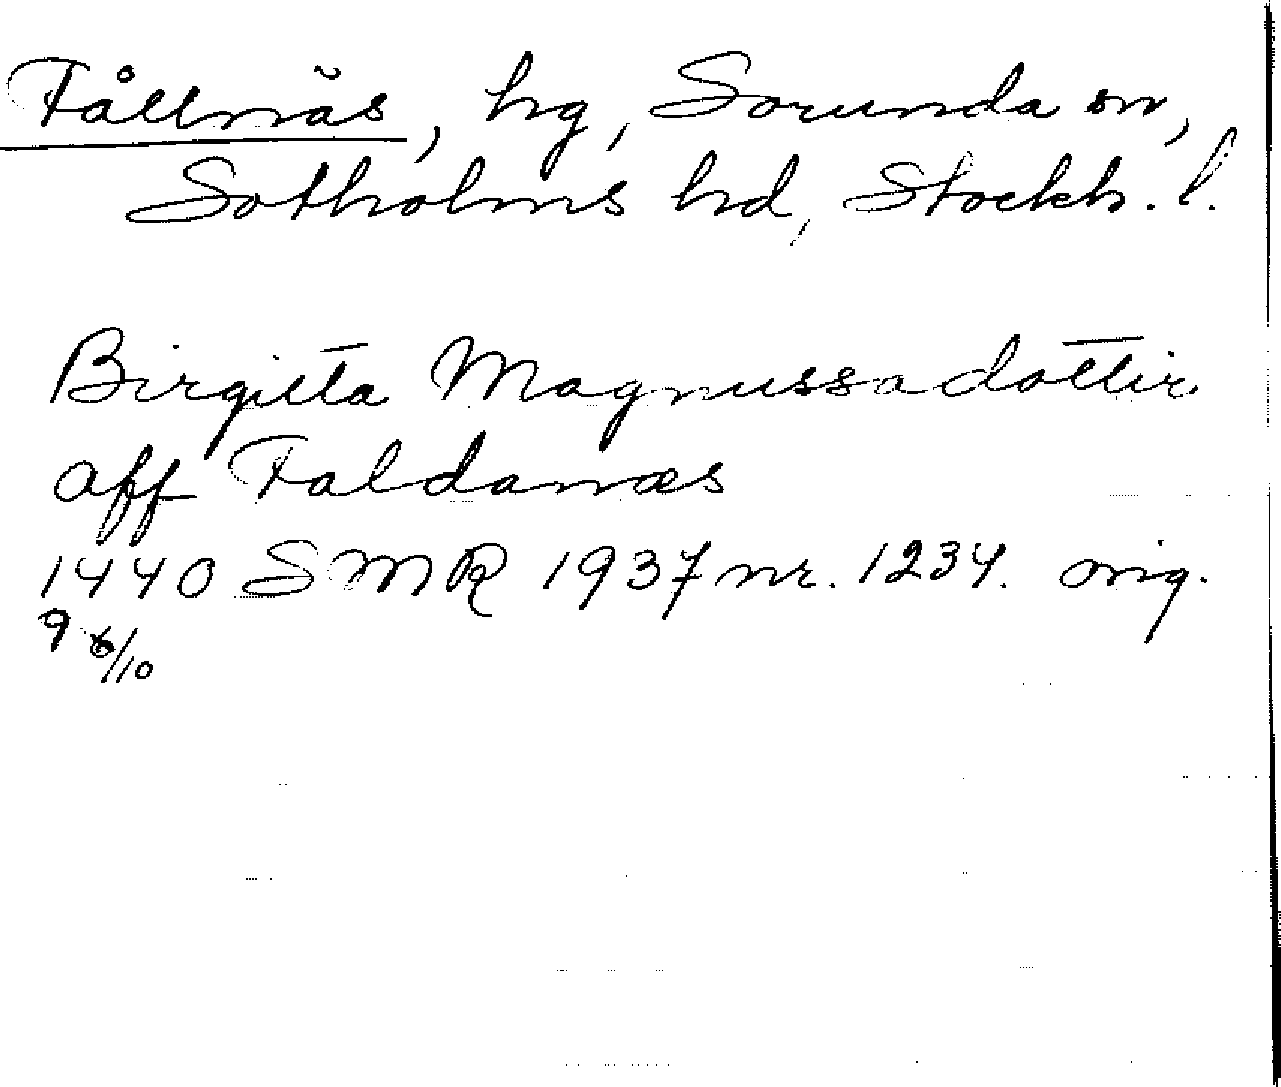 Fållnäs, hg, Sorunda sn,
Sotholms hd, Stockh. l.
Birgitta Magnussadottir
aff Faldanæs
1440 SMR 1937 nr. 1234. orig.
9 6/10